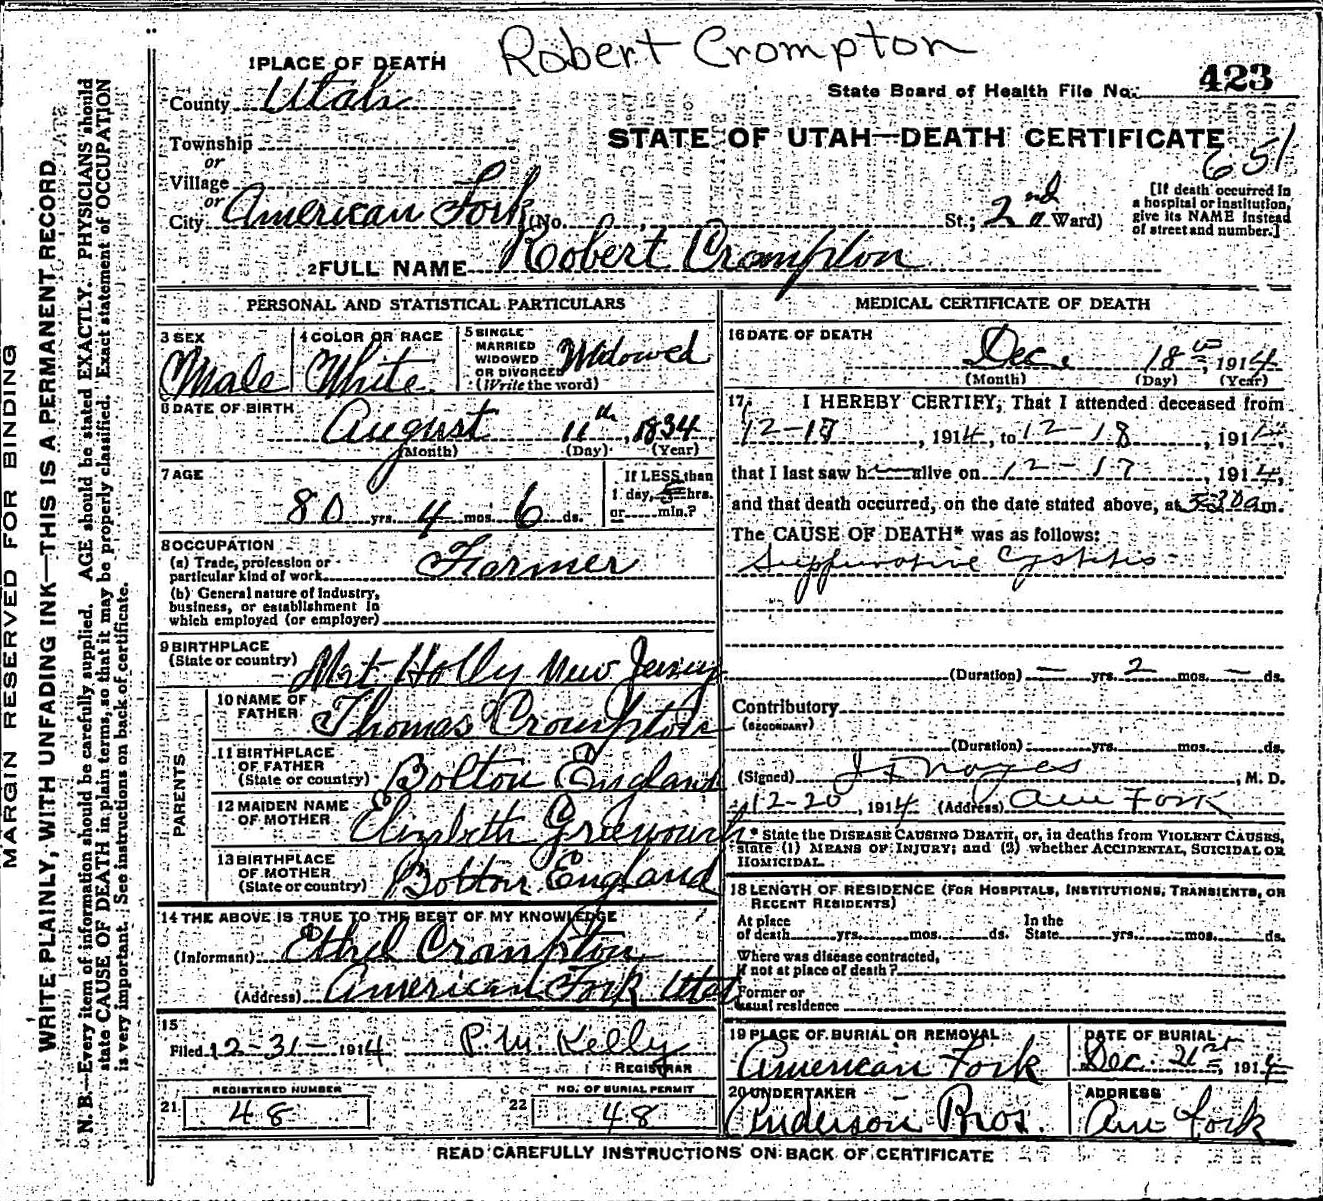 Robert Crompton
1 PLACE OF DEATH
County Utah
State Board of Health File No. 423
Township
or
Village
or
City American Fork (No. , St.; 2nd Ward)
STATE OF UTAH—DEATH CERTIFICATE
651
[If death occurred in
a hospital or institution,
give its NAME instead
of street and number.]
2 FULL NAME Robert Crompton
PERSONAL AND STATISTICAL PARTICULARS
3 SEX
Male
4 COLOR OR RACE
White
5 SINGLE
MARRIED
WIDOWED
OR DIVORCED
(Write the word)
Widowed
6 DATE OF BIRTH
August 11th, 1834
(Month) (Day) (Year)
7 AGE
80 yrs. 4 mos. 6 ds.
If LESS than
1 day, hrs.
or min.?
8 OCCUPATION
(a) Trade, profession or
particular kind of work Farmer
(b) General nature of Industry,
business, or establishment in
which employed (or employer)
9 BIRTHPLACE
(State or country) Mt Holly New Jersey
PARENTS
10 NAME OF
FATHER Thomas Crompton
11 BIRTHPLACE
OF FATHER
(State or country) Bolton England
12 MAIDEN NAME
OF MOTHER Elizabeth
13 BIRTHPLACE
OF MOTHER
(State or country) Bolton England
14 THE ABOVE IS TRUE TO THE BEST OF MY KNOWLEDGE
(Informant) Ethel Crompton
(Address) American Fork Utah
15
Filed 12-31- 1914 P. M. Kelly
REGISTRAR
REGISTERED NUMBER
21 48
NO. OF BURIAL PERMIT
22 48
MEDICAL CERTIFICATE OF DEATH
16 DATE OF DEATH
Dec. 18th, 1914
(Month) (Day) (Year)
17. I HEREBY CERTIFY, That I attended deceased from
12-17, 1914, to 12-18, 1914,
that I last saw h alive on 12-17, 1914,
and that death occurred, on the date stated above, at 5-30 a m.
The CAUSE OF DEATH* was as follows:
Suppurative Cystitis
(Duration) — yrs. 2 mos. — ds.
Contributory
(SECONDARY)
(Duration) yrs. mos. ds.
(Signed) J F Noyes, M. D.
12-20, 1914 (Address) Am Fork
* State the DISEASE CAUSING DEATH, or, in deaths from VIOLENT CAUSES,
state (1) MEANS OF INJURY; and (2) whether ACCIDENTAL, SUICIDAL OR
HOMICIDAL.
18 LENGTH OF RESIDENCE (FOR HOSPITALS, INSTITUTIONS, TRANSIENTS, OR
RECENT RESIDENTS)
At place
of death yrs. mos. ds.
In the
State yrs. mos. ds.
Where was disease contracted,
if not at place of death?
Former or
usual residence
19 PLACE OF BURIAL OR REMOVAL
American Fork
DATE OF BURIAL
Dec. 21st, 1914
20 UNDERTAKER
Anderson Bros.
ADDRESS
Am Fork
READ CAREFULLY INSTRUCTIONS ON BACK OF CERTIFICATE
MARGIN RESERVED FOR BINDING
WRITE PLAINLY, WITH UNFADING INK—THIS IS A PERMANENT RECORD
N. B.—Every item of information should be carefully supplied. AGE should be stated EXACTLY. PHYSICIANS should
state CAUSE OF DEATH in plain terms, so that it may be properly classified. Exact statement of OCCUPATION
is very important. See instructions on back of certificate.